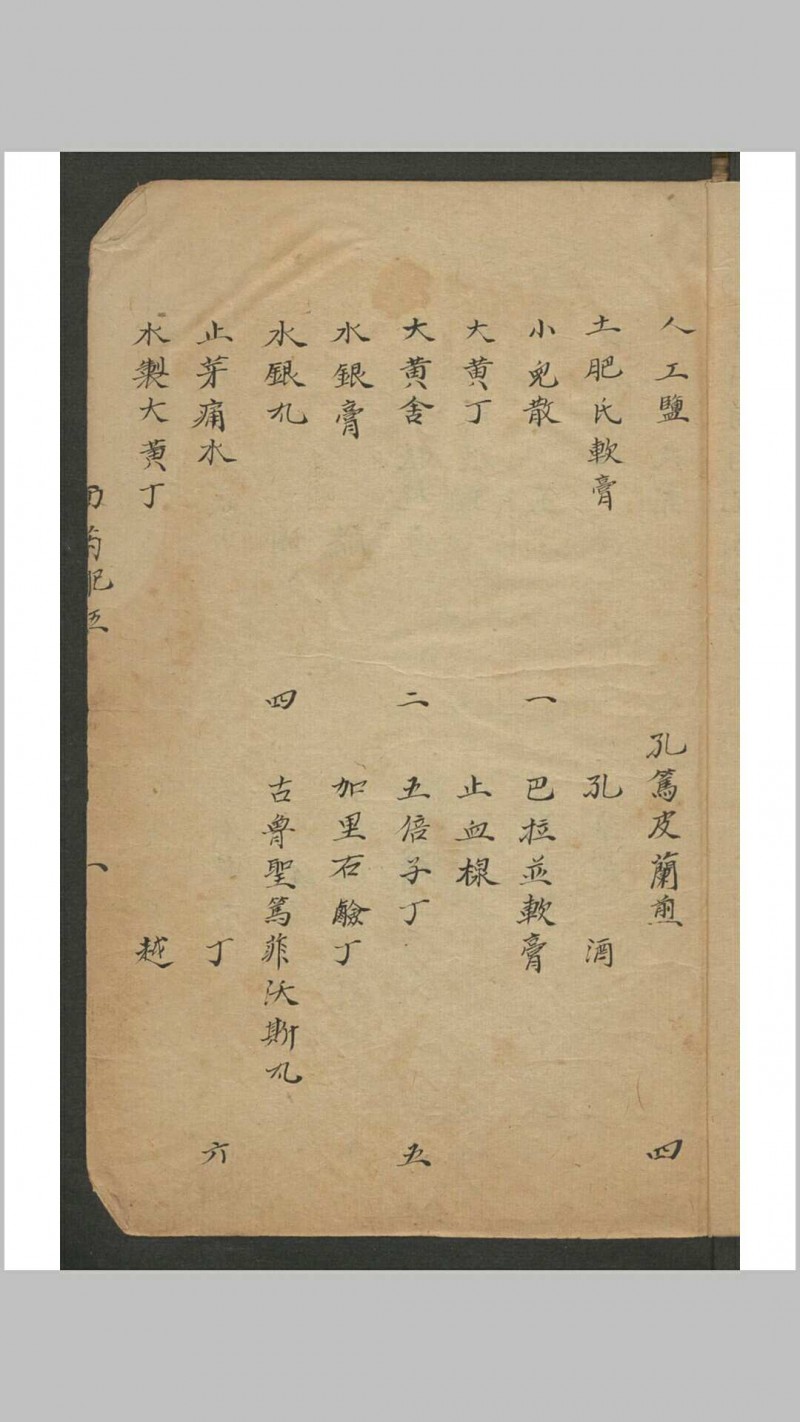 人工鹽
土肥氏軟膏
小兒散 一
大黄丁
大黄舍 二
水銀膏
水銀丸 四
止芽痛水
水製大黄丁
孔篤皮蘭煎 四
孔 酒
巴拉並軟膏
止血
五倍子丁 五
加里石鹼丁
古魯聖篤菲沃斯丸
丁 六
越